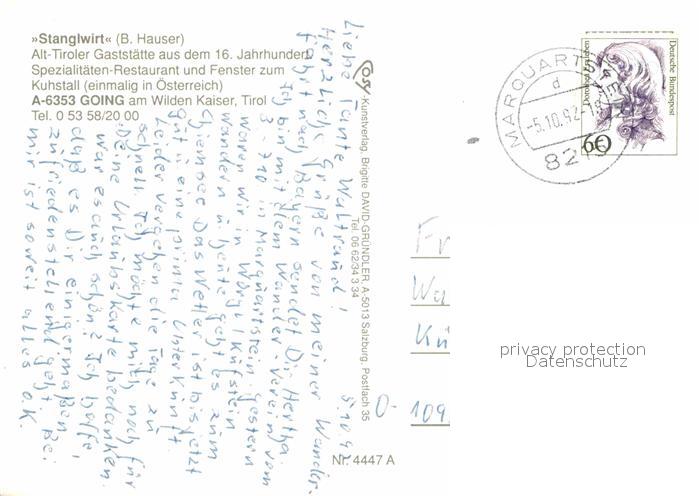 »Stanglwirt« (B. Hauser)
Alt-Tiroler Gaststätte aus dem 16. Jahrhundert
Spezialitäten-Restaurant und Fenster zum
Kuhstall (einmalig in Österreich)
A-6353 GOING am Wilden Kaiser, Tirol
Tel. 0 53 58/20 00
5.10.92
Liebe Tante Waltraud!
Herzliche Grüße von meiner Wander-
fahrt nach Bayern sendet Dir Hertha.
Ich bin mit dem Wander-Verein vom
3.-7.10 in Marquartstein. Gestern
waren wir in Wörgl/Kufstein
wandern u. heute geht es zum
Chiemsee. Das Wetter ist bis jetzt
gut u. eine prima Unterkunft.
Leider vergehen die Tage zu
schnell. Ich möchte mich noch für
Deine Urlaubskarte bedanken.
War es auch schön? Ich hoffe,
daß es Dir einigermaßen
zufriedenstellend geht. Bei
mir ist soweit alles o.K.
Cosy
Kunstverlag Brigitte DAVID-GRÜNDLER, A-5013 Salzburg, Postfach 35
Tel. 06 62/34 3 34
Nr. 4447 A
Deutsche Bundespost
Dorothea Erxleben
60
MARQUARTSTEIN
d
-5.10.92-18
Fr
Wa
Kü
O-109
privacy protection
Datenschutz